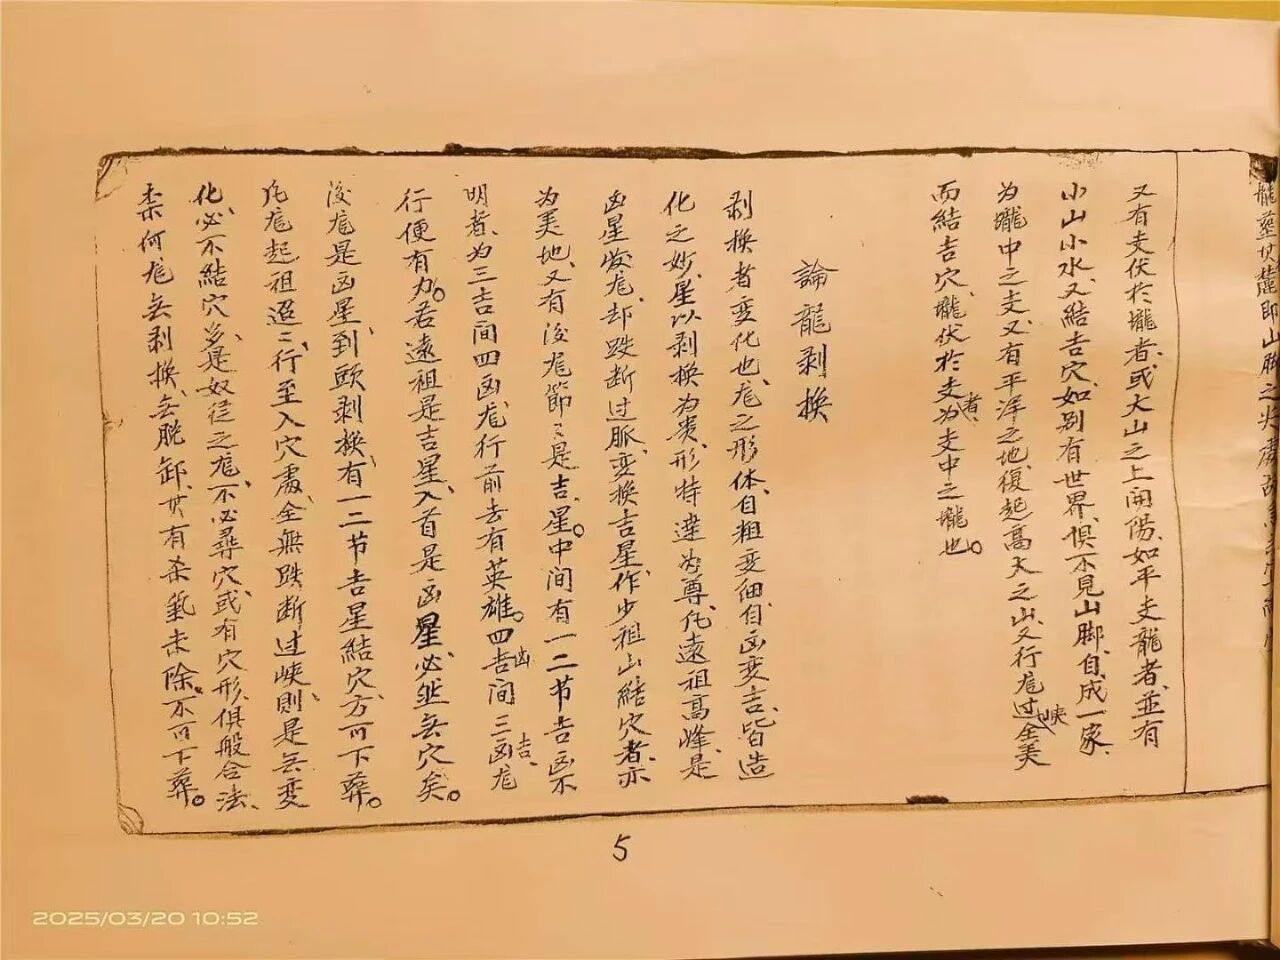 又有支伏於壠者、或大山之上開陽、如平支龍者、並有
小山小水、又結吉穴、如别有世界、俱不見山脚、自成一家、
為壠中之支、又有平洋之地、復起高大之山、又行龙过峡全美
而結吉穴、壠伏於支者、為支中之壠也。
論龍剥換
剥換者变化也、龙之形体、自粗变細、自凶变吉、皆造
化之妙、星以剥換為贵、形特達為尊、凡遠祖高峰、是
凶星発龙、却跌断过脈、变換吉星、作少祖山結穴者、亦
为美地、又有後龙節々是吉星。中间有一二节吉凶不
明者、为三吉间四凶龙、行前去有英雄。四凶吉间三吉凶龙
行便有力。若遠祖是吉星、入首是凶星、必然无穴矣。
後龙是凶星、到頭剥換、有一二节吉星結穴、方可下葬。
凡龙起祖迢々行、至入穴處、全無跌断过峡、則是无变
化、必不結穴、多是奴従之龙、不必尋穴、或有穴形俱般合法、
柰何龙无剥換、无脱卸、其有杀氣未除。不可下葬。
5
2025/03/20 10:52